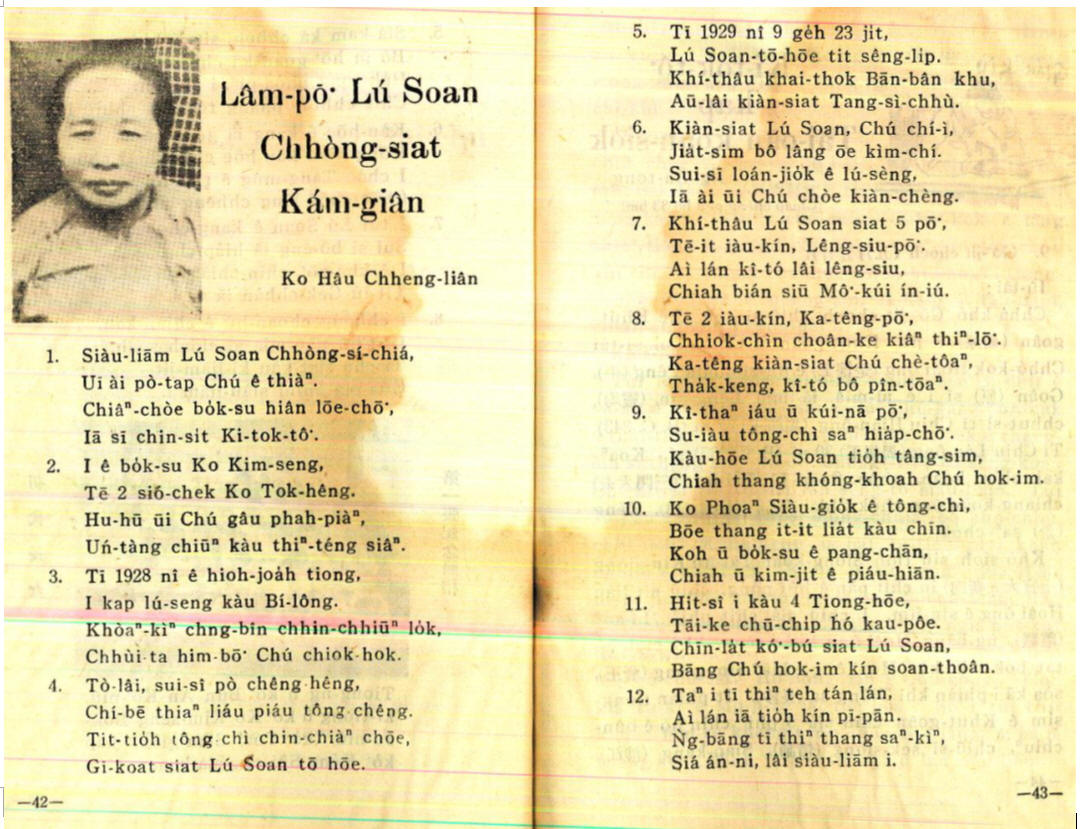 Lâm-pō͘ Lú Soan
Chhòng-siat
Kám-giân
Ko Hâu Chheng-liân
1. Siàu-liām Lú Soan Chhòng-sí-chiá,
Ui ài pò-tap Chú ê thiàⁿ.
Chiâⁿ-chòe bo̍k-su hiân lōe-chō͘,
Iā sī chin-sit Ki-tok-tô͘.
2. I ê bo̍k-su Ko Kim-seng,
Tē 2 sió-chek Ko Tok-hêng.
Hu-hū ūi Chú gâu phah-piàⁿ,
Uń-tàng chiūⁿ kàu thiⁿ-téng siâⁿ.
3. Tī 1928 nî ê hioh-joa̍h tiong,
I kap lú-seng kàu Bí-lông.
Khòaⁿ-kìⁿ chng-bîn chhin-chhiūⁿ lo̍k,
Chhùi-ta him-bō͘ Chú chiok-hok.
4. Tò-lâi, sui-sî pò chêng-hêng,
Chí-bē thiaⁿ liáu piáu tông chêng.
Tit-tio̍h tông-chì chin-chiàⁿ chōe,
Gī-koat siat Lú Soan tō hōe.
—42—
5. Tī 1929 nî 9 ge̍h 23 ji̍t,
Lú Soan-tō-hōe tit sêng-li̍p.
Khí-thâu khai-thok Bān-bân khu,
Aū-lâi kiàn-siat Tang-sì-chhù.
6. Kiàn-siat Lú Soan, Chú chí-ì,
Jia̍t-sim bô lâng ōe kìm-chí.
Sui-sī loán-jio̍k ê lú-sèng,
Iā ài ūi Chú chòe kiàn-chèng.
7. Khí-thâu Lú Soan siat 5 pō͘,
Tē-it iàu-kín, Lêng-siu-pō͘.
Aì lán kî-tó lâi lêng-siu,
Chiah bián siū Mô͘-kúi ín-iú.
8. Tē 2 iàu-kín, Ka-têng-pō͘,
Chhiok-chìn choân-ke kiâⁿ thiⁿ-lō͘.
Ka-têng kiàn-siat Chú chè-tôaⁿ,
Tha̍k-keng, kî-tó bô pîn-tōaⁿ.
9. Kî-thaⁿ iáu ū kúi-nā pō͘,
Su-iàu tông-chì saⁿ hia̍p-chō͘.
Kàu-hōe Lú Soan tio̍h tâng-sim,
Chiah thang khóng-khoah Chú hok-im.
10. Ko Phoaⁿ Siàu-gio̍k ê tông-chì,
Bōe thang it-it lia̍t kàu chīn.
Koh ū bo̍k-su ê pang-chān,
Chiah ū kim-ji̍t ê piáu-hiān.
11. Hit-sî i kàu 4 Tiong-hōe,
Tāi-ke chū-chi̍p hó kau-pôe.
Chīn-la̍t kó͘-bú siat Lú Soan,
Bāng Chú hok-im kín soan-thoân.
12. Taⁿ i tī thiⁿ teh tán lán,
Aì lán iā tio̍h kín pī-pān.
Ǹg-bāng tī thiⁿ thang saⁿ-kìⁿ,
Siá án-ni, lâi siàu-liām i.
—43—